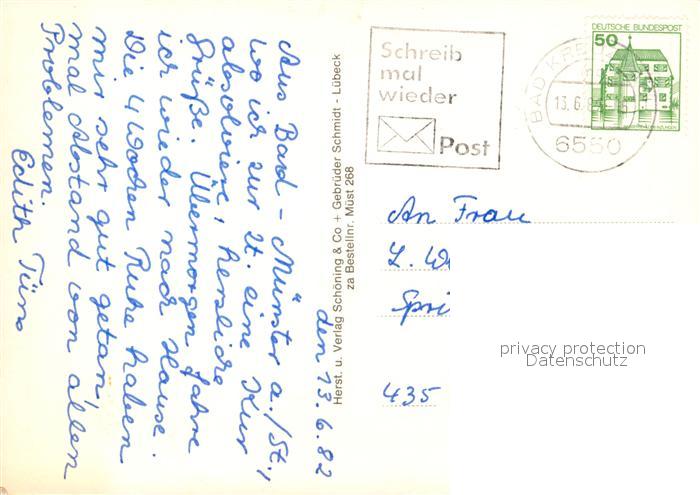 den 13.6.82
Aus Bad-Münster a./St.,
wo ich zur Zt. eine Kur
absolviere, herzliche
Grüße. Übermorgen fahre
ich wieder nach Hause.
Die 4 Wochen Ruhe haben
mir sehr gut getan,
mal Abstand von allen
Problemen.
Edith
Herst. u. Verlag Schöning & Co + Gebrüder Schmidt - Lübeck
za Bestellnr. Müst 268
Schreib
mal
wieder
Post
BAD KRE
13.6.
6550
DEUTSCHE BUNDESPOST
50
An Frau
L. W
Spri
435
privacy protection
Datenschutz